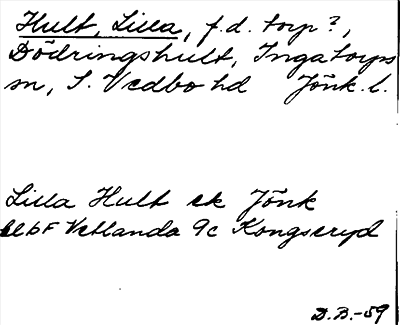 Hult, Lilla, f.d. torp?,
Dödringshult, Ingatorps
sn, S. Vedbo hd Jönk. l.
Lilla Hult ek Jönk
elbF Vetlanda 9c Kongseryd
D.B.-59